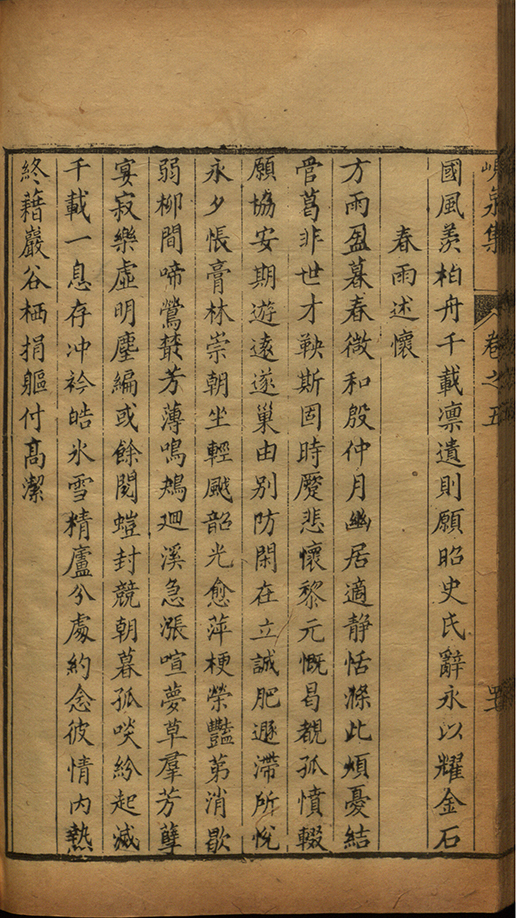 峴泉集 卷之五
國風羨柏舟千載凛遺則願昭史氏辭永以耀金石
春雨述懷
方雨盈暮春微和殷仲月幽居適静恬滌此煩憂結
管葛非世才鞅斯固時蹷悲懷黎元慨曷覩孤憤輟
願協安期遊遠遂巢由別防閑在立誠肥遯滯所悅
永夕悵膏林崇朝坐輕颸韶光愈萍梗榮豔第消歇
弱柳間啼鶯藂芳薄鳴鴂迴溪急漲喧夢草羣芳孽
宴寂樂虛明塵編或餘閱螘封競朝暮孤啖紛起滅
千載一息存冲衿皓氷雪精廬兮處約念彼情内熱
終藉巖谷栖捐軀付髙潔